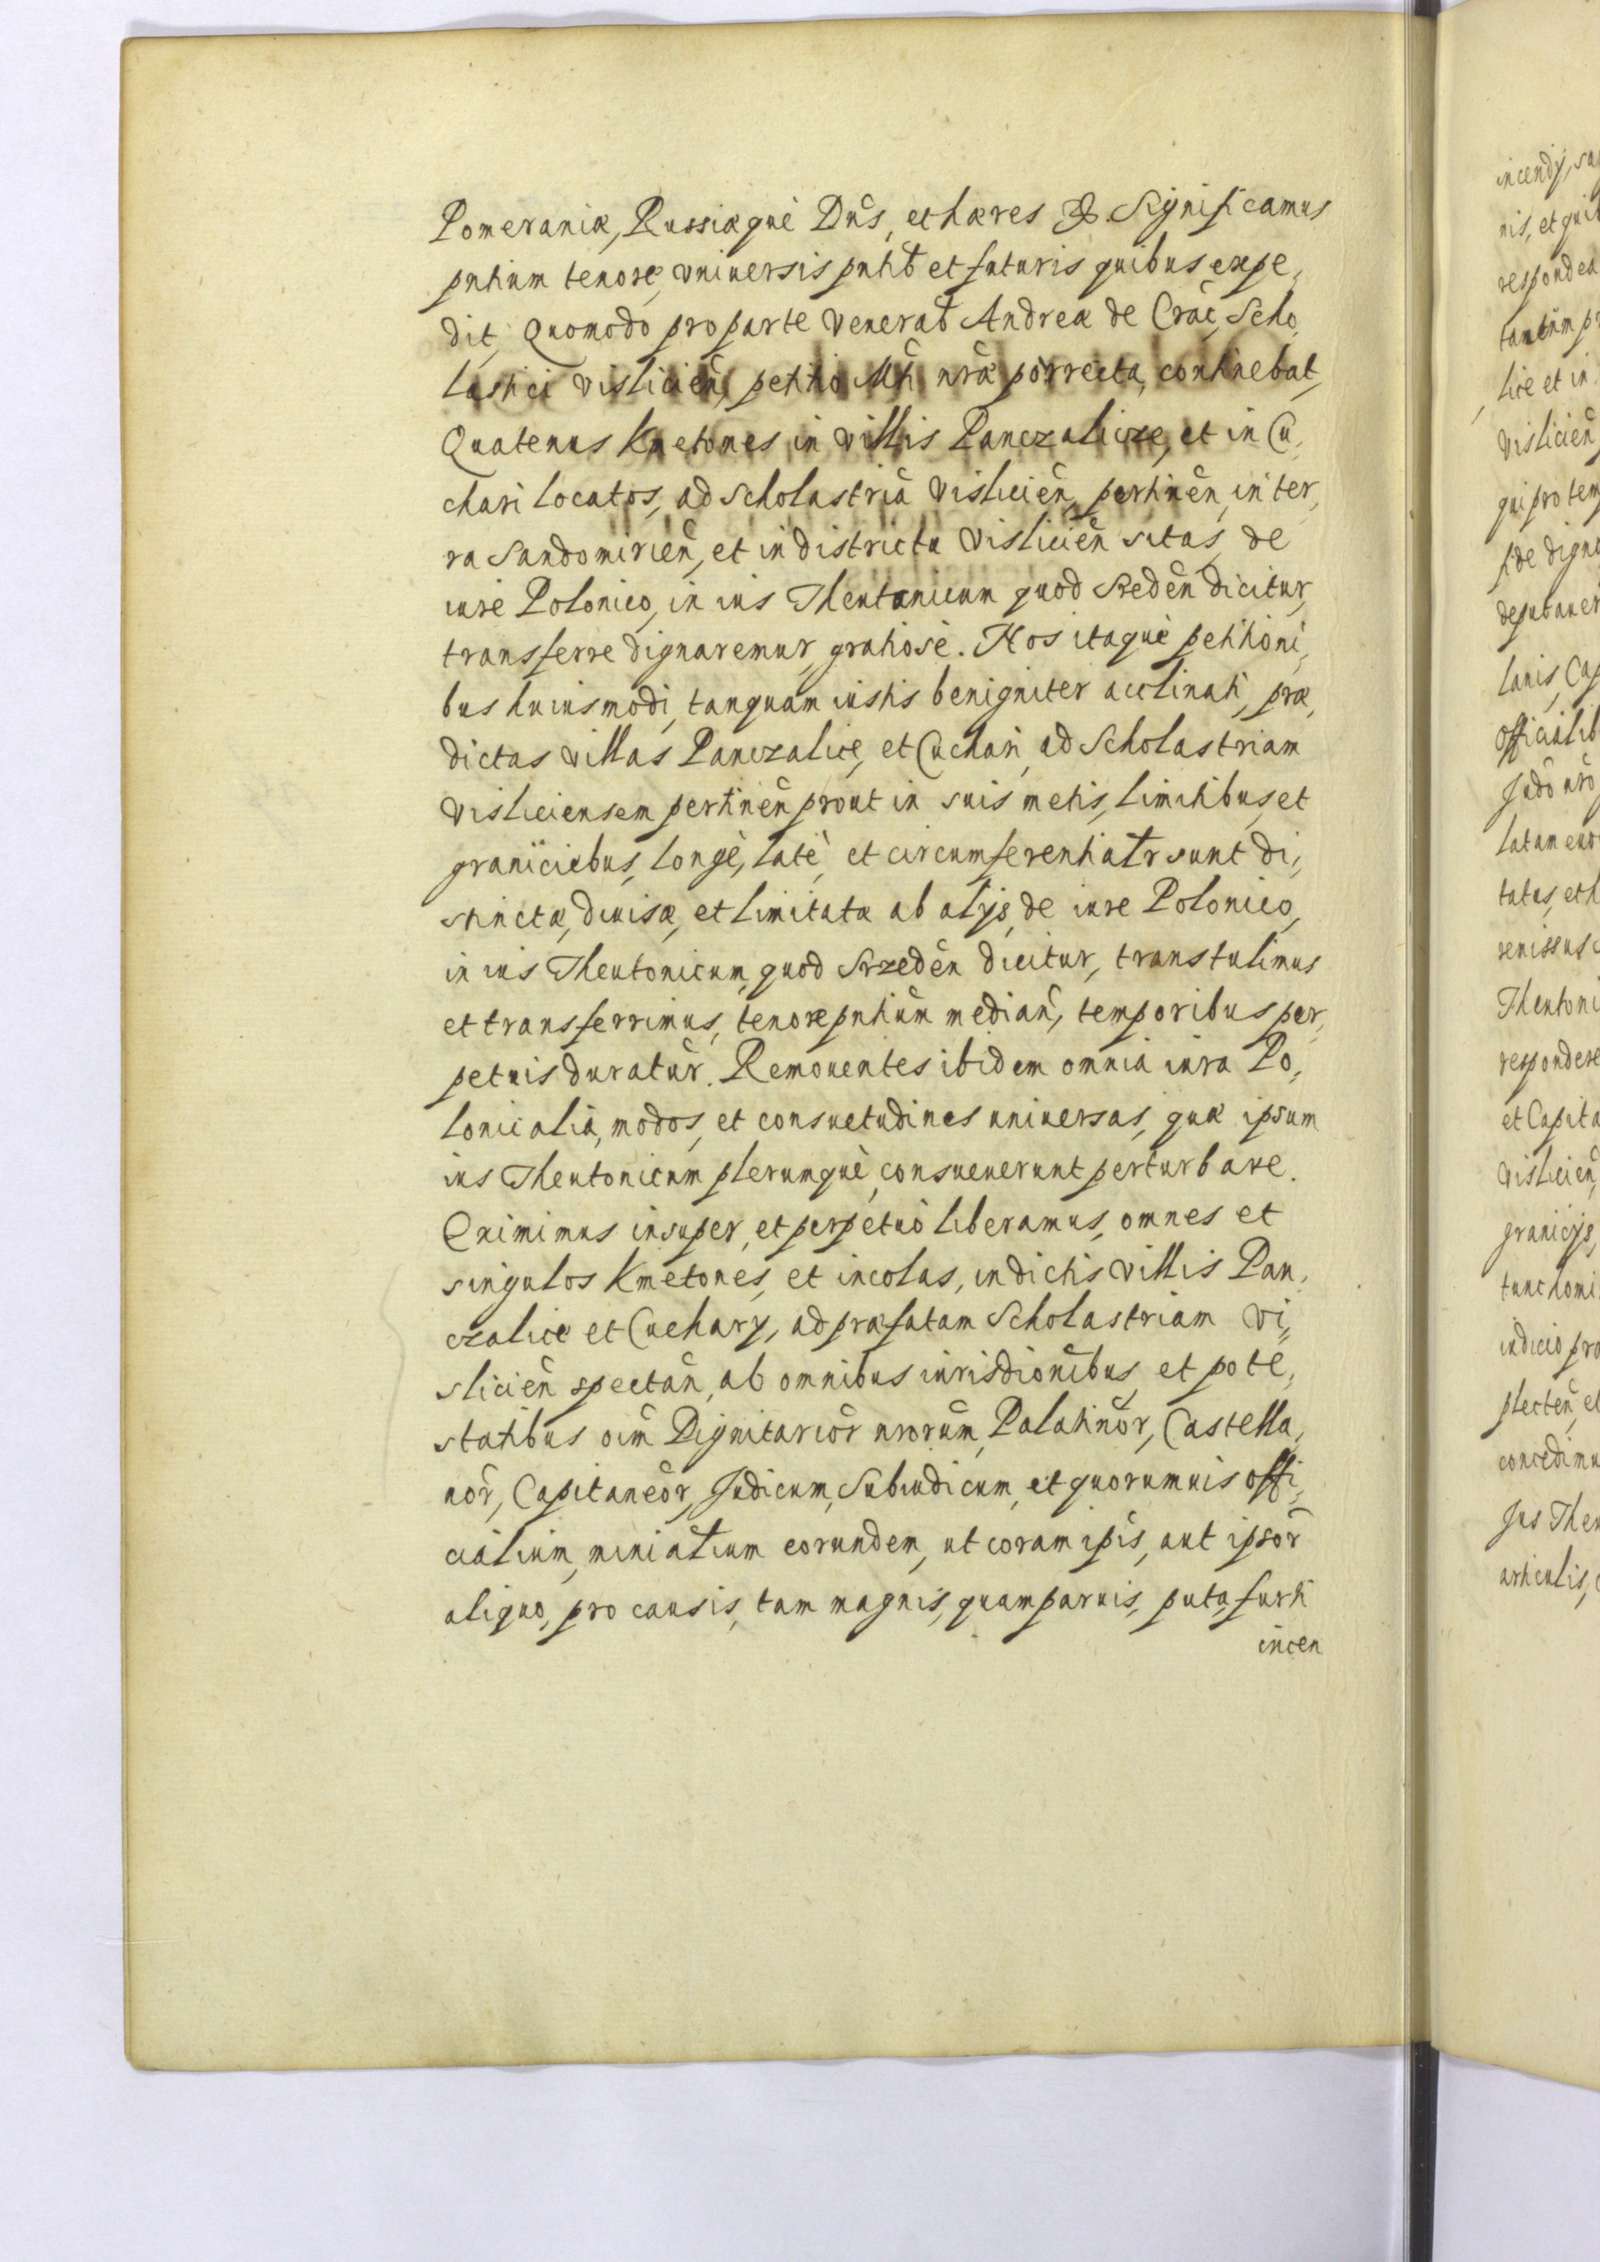 Pomeraniæ, Russiæquè Dñs, et hæres &. Significamus
pntium tenore, vniuersis pntib et futuris quibus expe,
dit, Quomodo pro parte Venerab Andreæ de Crac, Scho,
lastici Visliciẽn, petitio Mti nræ porrecta, continebat,
Quatenus Kmetones in villis Panczalicze, et in Cu,
chari locatos, ad Scholastriã Visliciẽn, pertinẽn, in ter,
ra Sandomiriẽn, et in districtu Visliciẽn sitas, de
iure Polonico, in ius Theutonicum quod Sredẽn dicitur,
transferre dignaremur, gratiosè. Nos itaquè petitioni,
bus huiusmodi, tanquam iustis benigniter acclinati, præ,
dictas villas Panczalice, et Cuchari, ad Scholastriam
Visliciensem pertinẽn prout in suis metis, limitibus, et
graniciebus, longè, latè, et circumferentialr sunt di,
stinctæ, diuisæ, et limitatæ ab alijs, de iure Polonico,
in ius Theutonicum, quod Srzedẽn dicitur, transtulimus
et transferrimus, tenore pntiũm mediañ, temporibus per,
petuis duratũr. Remouentes ibidem omnia iura Po,
lonicalia, modos, et consuetudines uniuersas, quæ ipsum
ius Theutonicum plerumquè, consueuerunt perturbare.
Eximimus insuper, et perpetuò liberamus, omnes et
singulos Kmetones, et incolas, in dictis villis Pan,
czalice et Cuchary, ad præfatam Scholastriam Vi,
sliciẽn spectãn, ab omnibus iurisdionĩbus, et pote,
statibus oim̃ Dignitariõr nrorũm, Palatinõr, Castella,
nõr, Capitaneõr, Judicum, Subiudicum, et quorumuis offi,
cialium, minialium eorundem, ut coram ipĩs, aut ipsõr
aliquo, pro causis, tam magnis, quam paruis, puta, furti
incen